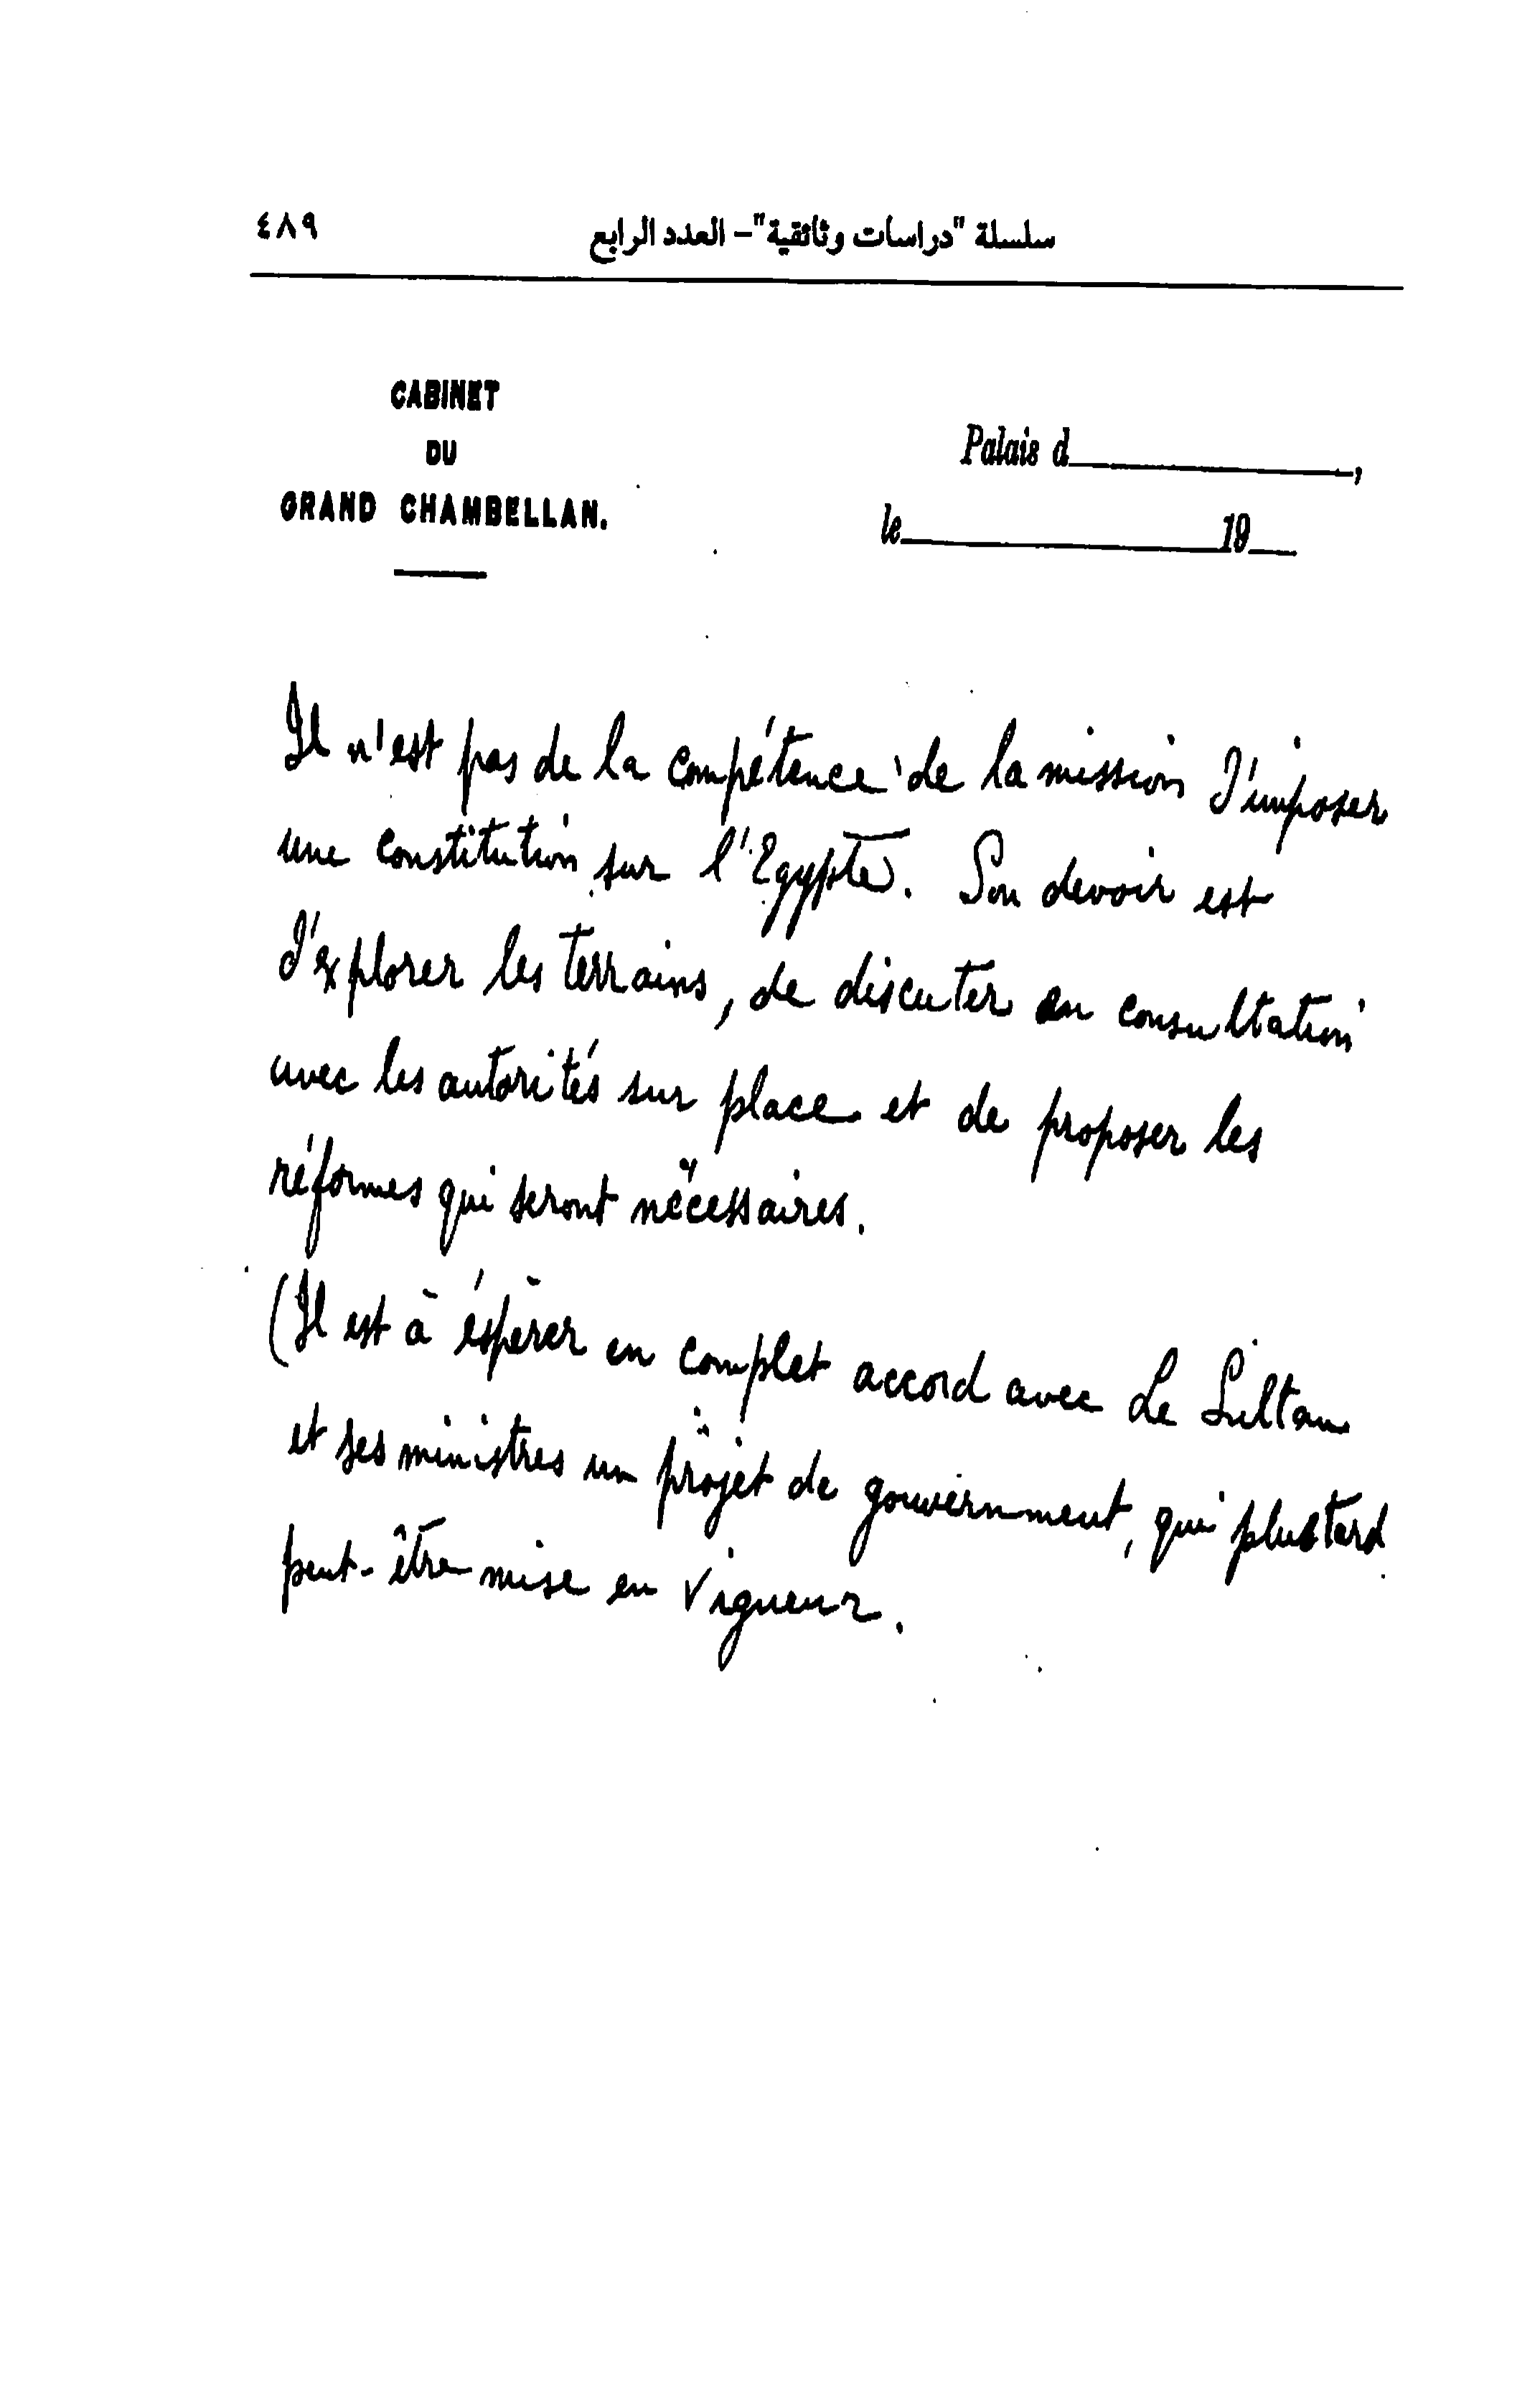 سلسلة "دراسات وثائقية"– العدد الرابع ٤٨٩
CABINET
DU
GRAND CHAMBELLAN.
Palais d,
le 19
Il n'est pas de la compétence de la mission d'imposer
une constitution sur l'Egypte. Son devoir est
d'explorer les terrains, de discuter en consultation
avec les autorités sur place et de proposer les
réformes qui seront nécessaires.
(Il est à éspèrer en complet accord avec Le Sultan
et ses ministres un projet de gouvernment, qui plus tard
peut-être mise en vigueur.